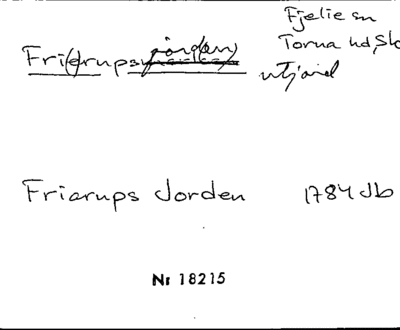 Fjelie sn
Torna hd, Sk
Fri(e)rups jorden
utjord
Friarups Jorden 1784 Jb
Nr 18215